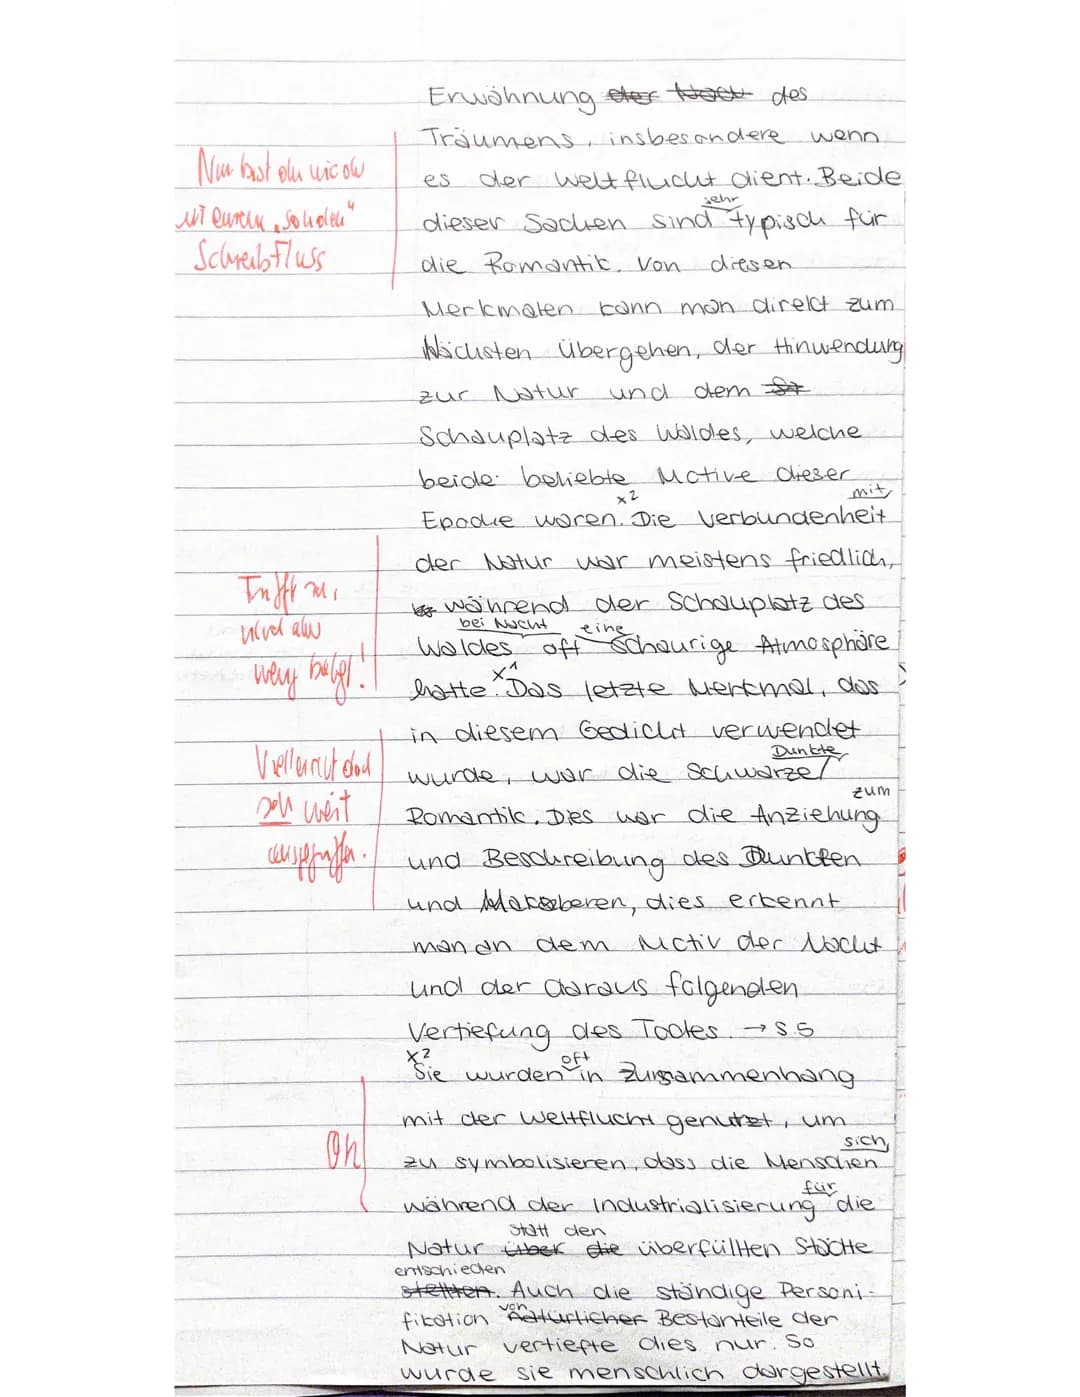 Erwähnung der Nach des
Träumens, insbesondere wenn
es der Weltflucht dient. Beide
sehr
dieser Sachen sind typisch für
die Romantik. Von diesen
Merkmalen kann man direkt zum
Nächsten übergehen, der Hinwendung
zur Natur und dem St
Schauplatz des Waldes, welche
beide beliebte Motive dieser
x2 mit
Epoche waren. Die Verbundenheit
der Natur war meistens friedlich,
während der Schauplatz des
bei Nacht eine
Waldes oft schaurige Atmosphäre
x1
hatte. Das letzte Merkmal, das
in diesem Gedicht verwendet
Dunkle
wurde, war die Schwarze
zum
Romantik. Dies war die Anziehung
und Beschreibung des Dunklen
und Makaberen, dies erkennt
man an dem Motiv der Nacht
und der daraus folgenden
Vertiefung des Todes. → S.5
x2 oft
Sie wurden in Zusammenhang
mit der Weltflucht genutzt, um
sich,
zu symbolisieren, dass die Menschen
für
während der Industrialisierung die
statt den
Natur über die überfüllten Städte
entschieden
stellten. Auch die ständige Personi-
von
fikation natürlicher Bestanteile der
Natur vertiefte dies nur. So
wurde sie menschlich dargestellt,
Nun bist du
Schreibfluss
Trifft zu,
wenig belegt!
Vielleicht doch
sehr weit